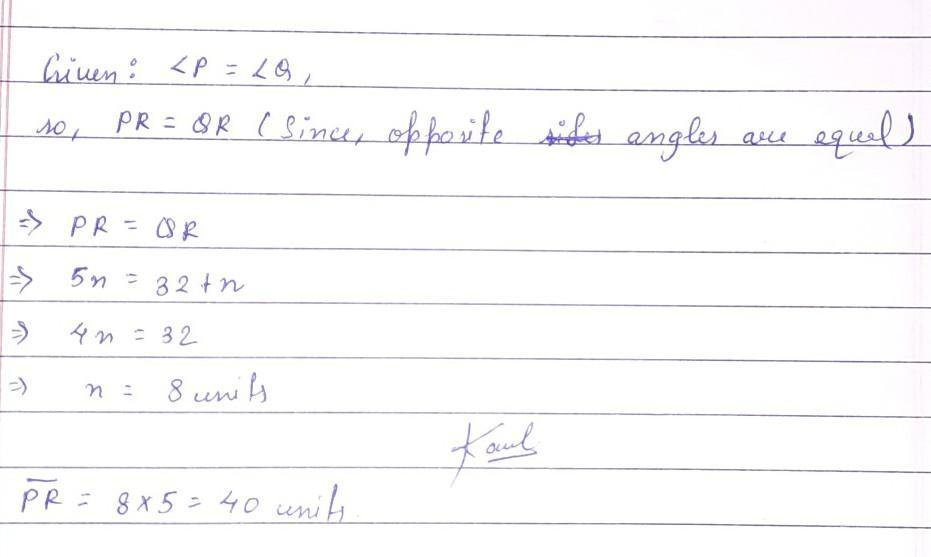 Given: ∠P = ∠Q,
so, PR = QR (Since, opposite sides angles are equal)
⇒ PR = QR
⇒ 5n = 32+n
⇒ 4n = 32
⇒ n = 8 units
Kaul
P̅R̅ = 8×5 = 40 units.